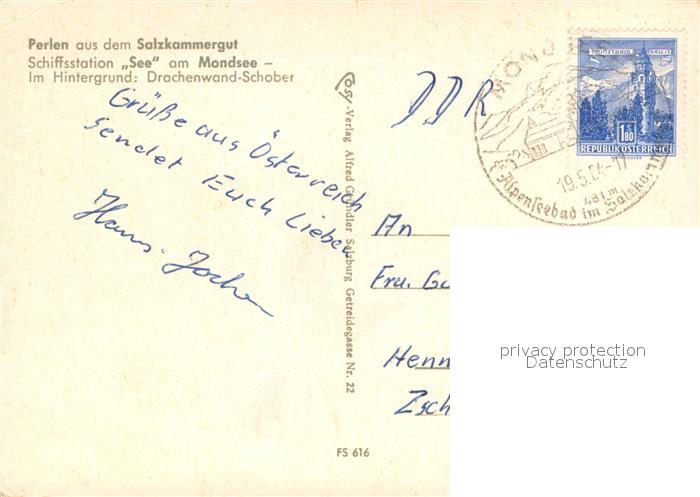 Perlen aus dem Salzkammergut
Schiffsstation „See“ am Mondsee –
Im Hintergrund: Drachenwand-Schober
Grüße aus Österreich
sendet Euch Lieben
Hans-Jochen
Cosy-Verlag Alfred Gründler Salzburg Getreidegasse Nr. 22
FS 616
DDR
MONDSEE
19.5.64-17
481 m
Alpenseebad im Salzkam
1.80
REPUBLIK ÖSTERREICH
An
Fra. Gu
Henn
Zsch
privacy protection
Datenschutz